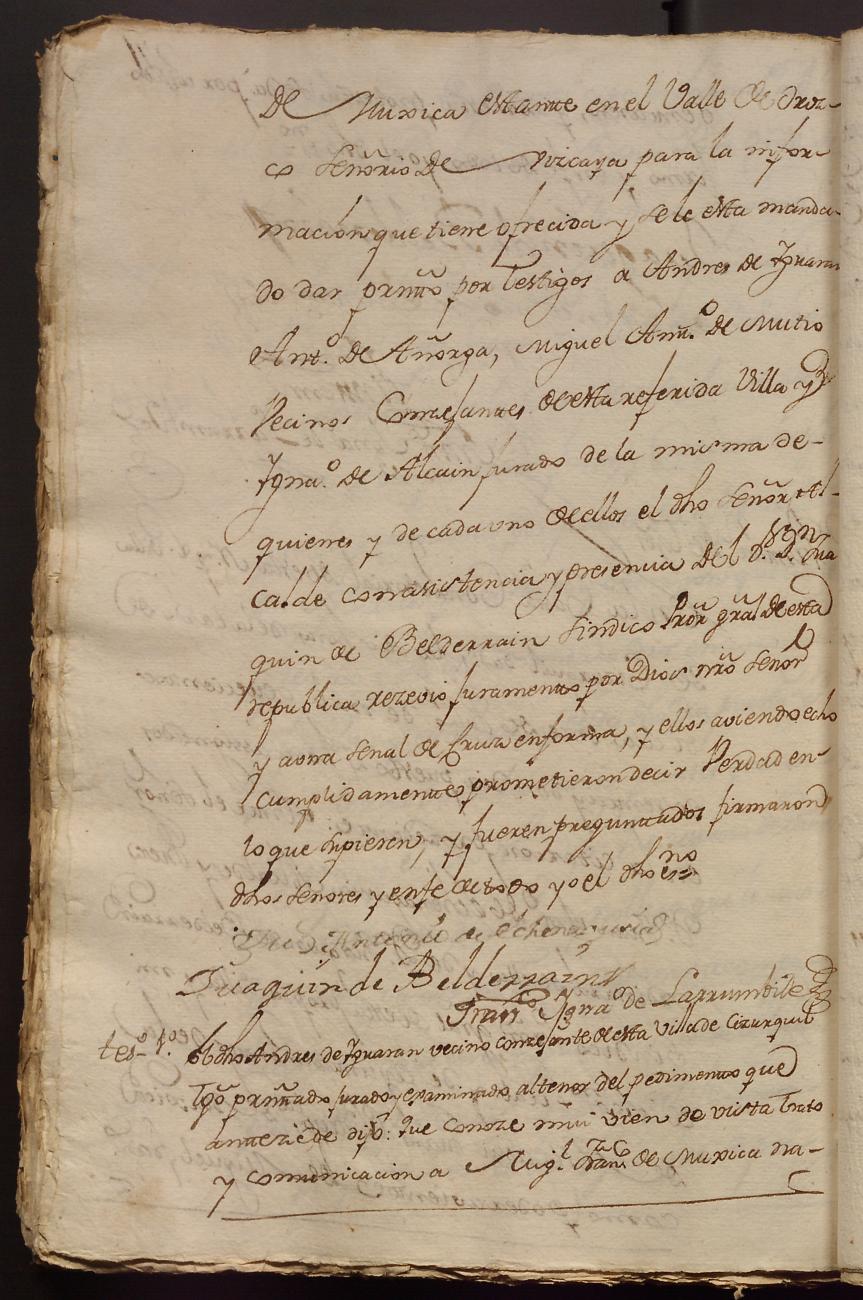 De Muxica estante en el Valle de Oroz-
co Señorio De Vizcaya para la infor-
macion que tiene ofrecida y se le esta manda-
do dar prntō por testigos a Andres de Yguaran
Antº. De Añorga, Miguel Antº. De Mutio
Vecinos Conzejantes de esta referida Villa y a
Ygnaº. de Alcain jurado de la misma de-
quienes y de cada uno de ellos el dho Señor Al-
calde con asistencia y presencia Del Sr. Dn. Jua
quin de Belderrain Sindico Pror. gral De esta
republica rezevio juramento por Dios nrō Señor
y a una señal de Cruz en forma, y ellos aviendo echo
cumplidamente prometieron decir Verdad en-
lo que supieren, y fueren preguntados firmaron
dhos Señores y en fe de todo yo el dho esno=
Antonio de Echenagusia
Juaquin de Belderrain
Franco. Ygnaº de Larrumbide
tesº 1º. El dho Andres de Yguaran vecino conzejante de esta Villa de Cizurquil
tgō prntado jurado y examinado al tenor del pedimento que
anteziede dijō: que conoze mui bien de vista trato
y comunicacion a Migl. Franco. de Muxica na-